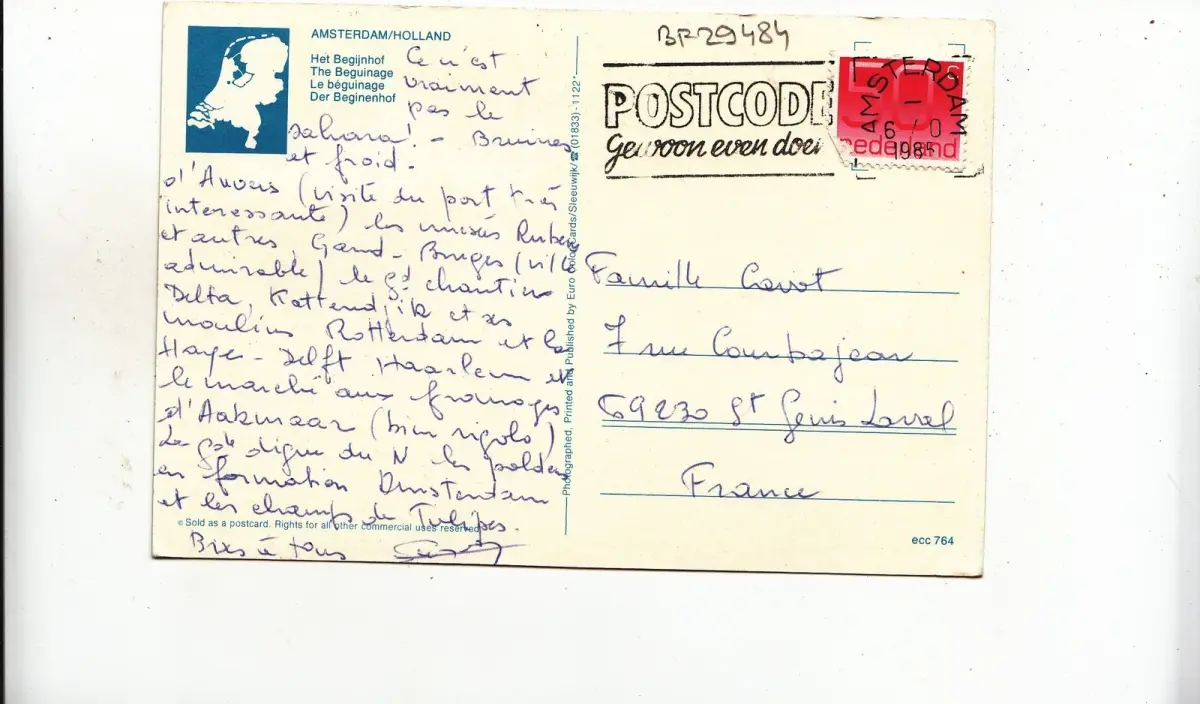 AMSTERDAM/HOLLAND
Het Begijnhof
The Beguinage
Le béguinage
Der Beginenhof
Ce n'est
vraiment
pas le
sahara! - Bruines
et froid.
d'Anvers (visite du port très
interessante) les musées Rubens
et autres, Gand - Bruges (ville
admirable) le gd chantier
Delta, Kattendjik et ses
moulins Rotterdam et la
Haye - Delft Haarlem et
le marché aux fromages
d'Aakmaar (bien rigolo)
La gde digue du N les polders
en formation Amsterdam
et les champs de Tulipes.
© Sold as a postcard. Rights for all other commercial uses reserved
Bises à tous
Photographed, Printed and Published by Euro Color Cards/Sleeuwijk/☎(01833)-1122*
BF29484
POSTCODE
Gewoon even doen
AMSTERDAM
1985
50c
nederland
Famille
7 rue
69230 St Genis Laval
France
ecc 764